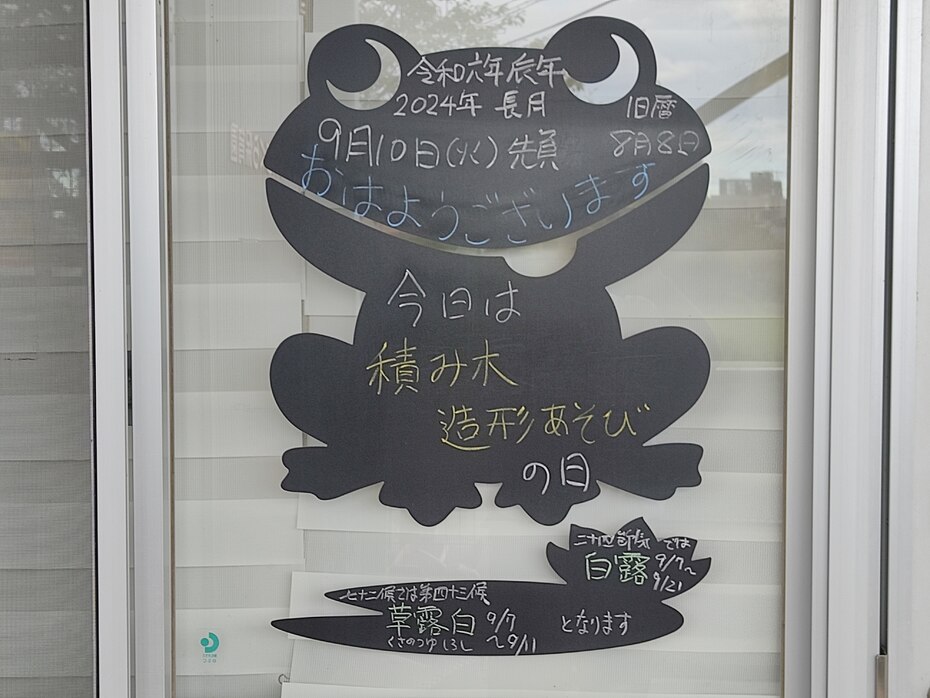 令和六年辰年
2024年 長月
旧暦
9月10日(火)先負
8月8日
おはようございます
今日は
積み木
造形あそび
の日
二十四節気 では
白露 9/7〜
9/21
七十二候では第四十三候
草露白 9/7
くさのつゆしろし 〜9/11
となります